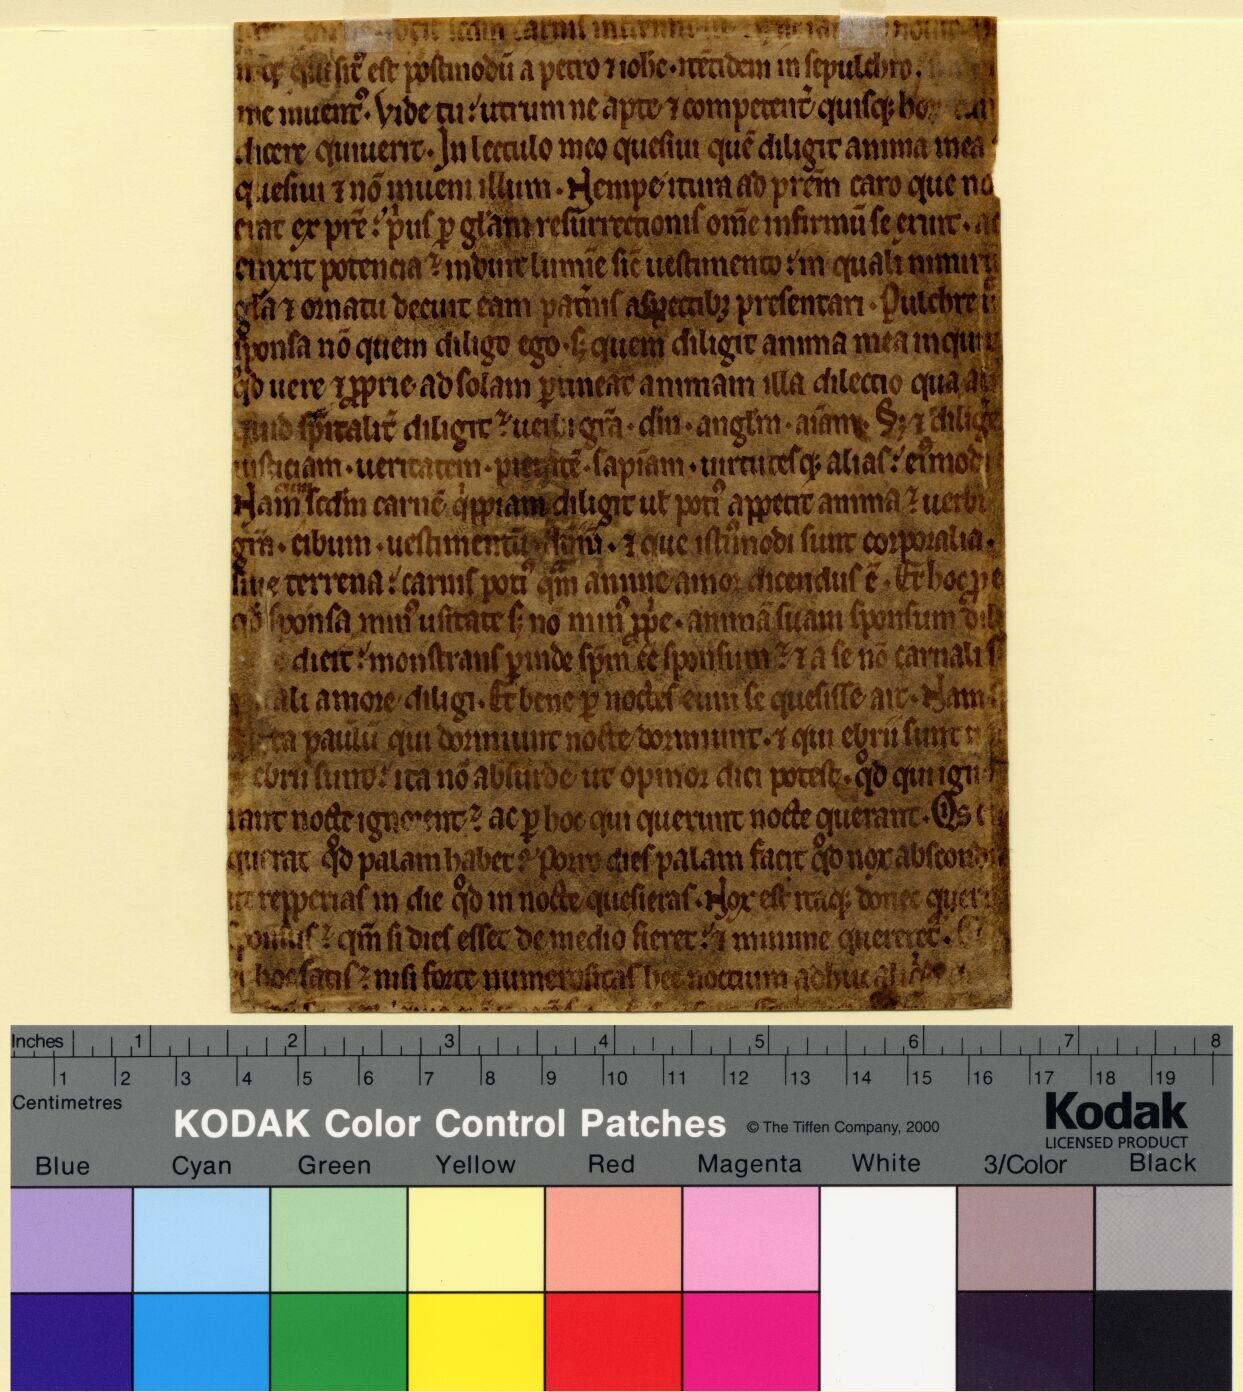 carnis infirmo
quesit' est postmodū a petro ⁊ ioħe · itētidem in sepulchro.
me inuent'. Vide tu: utrum ne apte ⁊ competent' quisq; hoc
dicere quiuerit. In lectulo meo quesiui quē diligit anima mea
quesiui ⁊ nō inueni illum. Nempe itura ad prēm caro que no
erat ex prē: pius p glām resurrectionis om̄e infirmū se eruit.
cinxit potencia ⁊ induit lumīe sic̄ uestimento: in quali nimirū
gl̄a ⁊ ornatu decuit eam patn̄is aspectib; presentari. Pulchre
sponsa nō quem diligo ego · s; quem diligit anima mea inquit
qd uere ⁊ ꝓprie ad solam ptineat animam illa dilectio qua
quid sp̄italit̄ diligit: uerbi gr̄a · dm̄ · angl̄m · aīam. S; ⁊
iusticiam · ueritatem · pietatē · sap̄iam · uirtutesq; alias: ei'modi
Nam cum sc̄dm carnē qppiam diligit ut̄ poti' appetit anima: uerbi
gr̄a · cibum · uestimentū · ⁊ que isti'modi sunt corporalia ·
siue terrena: carnis poti' qm̄ anime amor dicendus ē. Et hoc
qd sponsa min' usitate s; nō min' ꝓpe · animā suam sponsum
dicit: monstrans pinde sp̄m eē sponsum: ⁊ a se nō carnali
ali amore diligi. Et bene p noctes eum se quesisse ait. Nam
ta paulū qui dormiunt nocte dormiunt · ⁊ qui ebrii sunt
ebrii sunt: ita nō absurde ut opinor dici potest · qd qui
rant nocte ignorent: ac p hoc qui querunt nocte querant. Qs
querat qd palam habet: Porro dies palam facit qd nox abscond
ut repperias in die qd in nocte quesieras. Nox est itaq; donec querit
sponsus: qm̄ si dies esset de medio fieret: ⁊ minime quereret.
hoc satis: nisi forte numerositas hec noctium adhuc
Inches 1 2 3 4 5 6 7 8
1 2 3 4 5 6 7 8 9 10 11 12 13 14 15 16 17 18 19
Centimetres
KODAK Color Control Patches © The Tiffen Company, 2000 Kodak
LICENSED PRODUCT
Blue Cyan Green Yellow Red Magenta White 3/Color Black